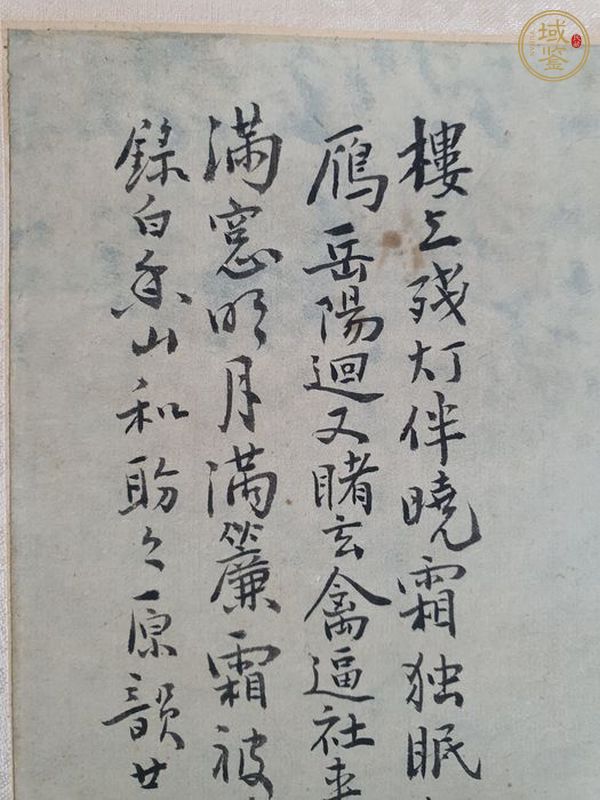 樓上残灯伴曉霜独眠
鴈岳陽迴又睹玄禽逼社来
满窓明月满簾霜被
錄白香山和盼之原韻廿
域鉴